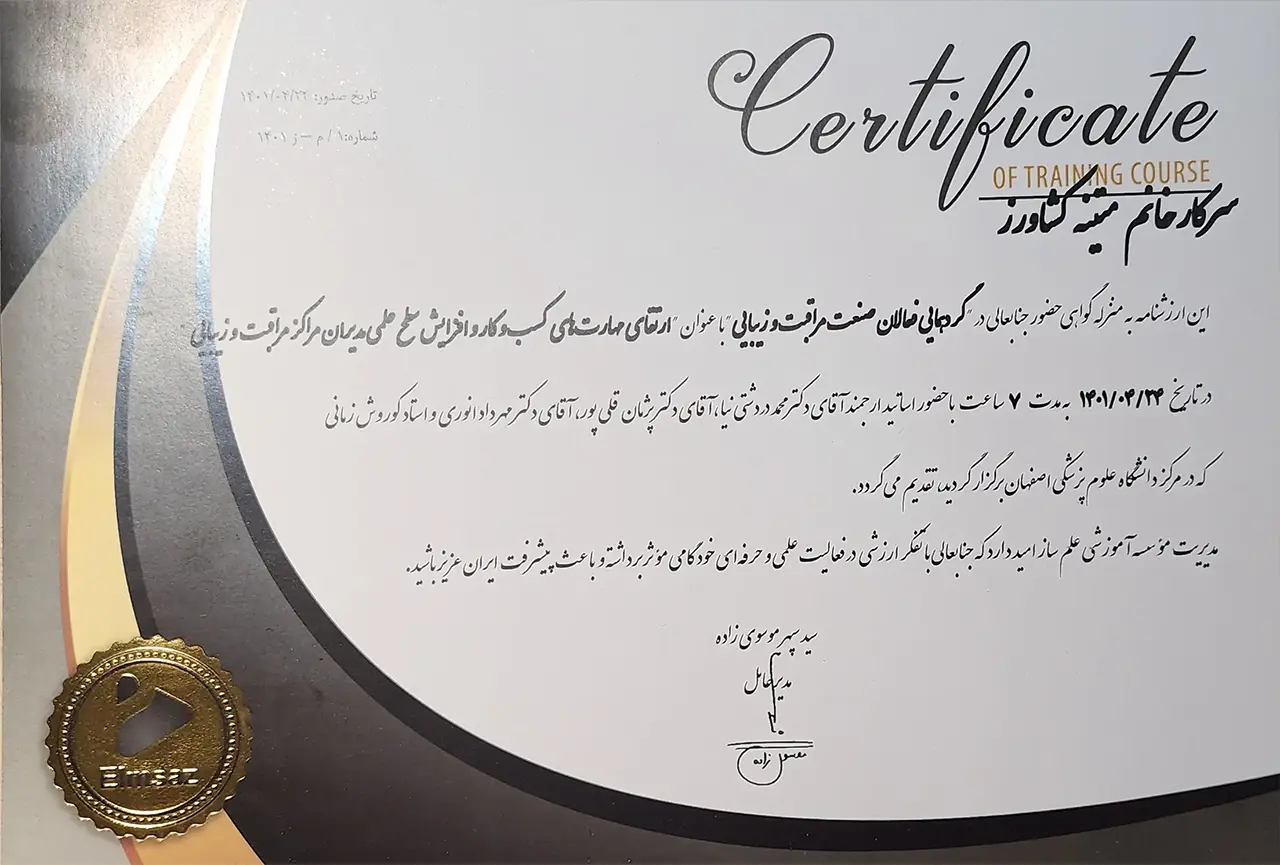 Certificate
OF TRAINING COURSE
تاریخ صدور: ۱۴۰۱/۰۴/۲۲
شماره: ۱ / م – ز ۱۴۰۱
سرکار خانم متینه کشاورز
این ارزشنامه به منزله گواهی حضور جنابعالی در "گردهمایی فعالان صنعت مراقبت و زیبایی" با عنوان "ارتقای مهارت‌های کسب و کار و افزایش سطح علمی مدیران مراکز مراقبت و زیبایی"
در تاریخ ۱۴۰۱/۰۴/۲۴ به مدت ۷ ساعت با حضور اساتید ارجمند آقای دکتر محمد دشتی نیا، آقای دکتر پژمان قلی پور، آقای دکتر مهرداد انوری و استاد کوروش زمانی
که در مرکز دانشگاه علوم پزشکی اصفهان برگزار گردید، تقدیم می‌گردد.
مدیریت مؤسسه آموزشی علم ساز امید دارد که جنابعالی با تفکر ارزشی در فعالیت علمی و حرفه‌ای خود گامی مؤثر برداشته و باعث پیشرفت ایران عزیز باشید.
سید سپهر موسوی زاده
مدیرعامل
موسوی زاده
Elmsaz